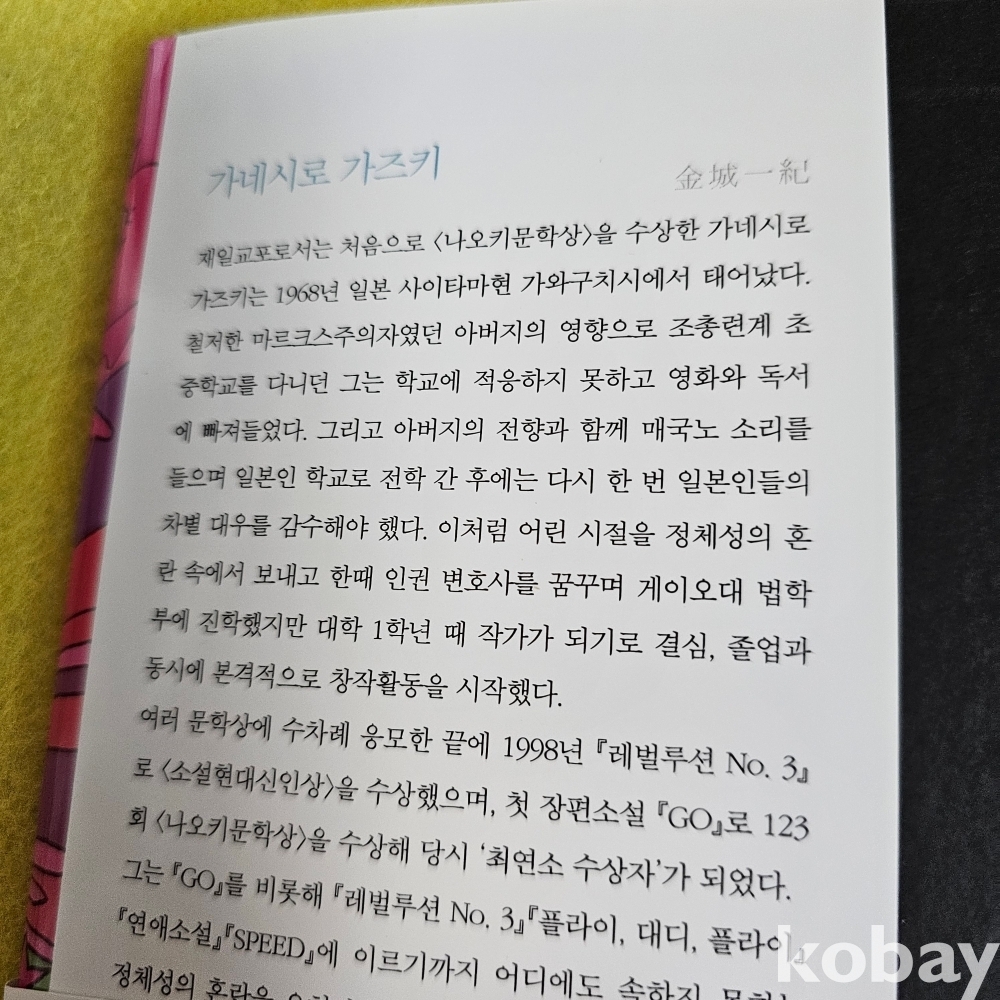 가네시로 가즈키 金城一紀
재일교포로서는 처음으로 〈나오키문학상〉을 수상한 가네시로
가즈키는 1968년 일본 사이타마현 가와구치시에서 태어났다.
철저한 마르크스주의자였던 아버지의 영향으로 조총련계 초
중학교를 다니던 그는 학교에 적응하지 못하고 영화와 독서
에 빠져들었다. 그리고 아버지의 전향과 함께 매국노 소리를
들으며 일본인 학교로 전학 간 후에는 다시 한 번 일본인들의
차별 대우를 감수해야 했다. 이처럼 어린 시절을 정체성의 혼
란 속에서 보내고 한때 인권 변호사를 꿈꾸며 게이오대 법학
부에 진학했지만 대학 1학년 때 작가가 되기로 결심, 졸업과
동시에 본격적으로 창작활동을 시작했다.
여러 문학상에 수차례 응모한 끝에 1998년 『레벌루션 No. 3』
로 〈소설현대신인상〉을 수상했으며, 첫 장편소설 『GO』로 123
회 〈나오키문학상〉을 수상해 당시 ‘최연소 수상자’가 되었다.
그는 『GO』를 비롯해 『레벌루션 No. 3』『플라이, 대디, 플라이』
『연애소설』『SPEED』에 이르기까지 어디에도 속하지 못하는
정체성의 혼란을
kobay